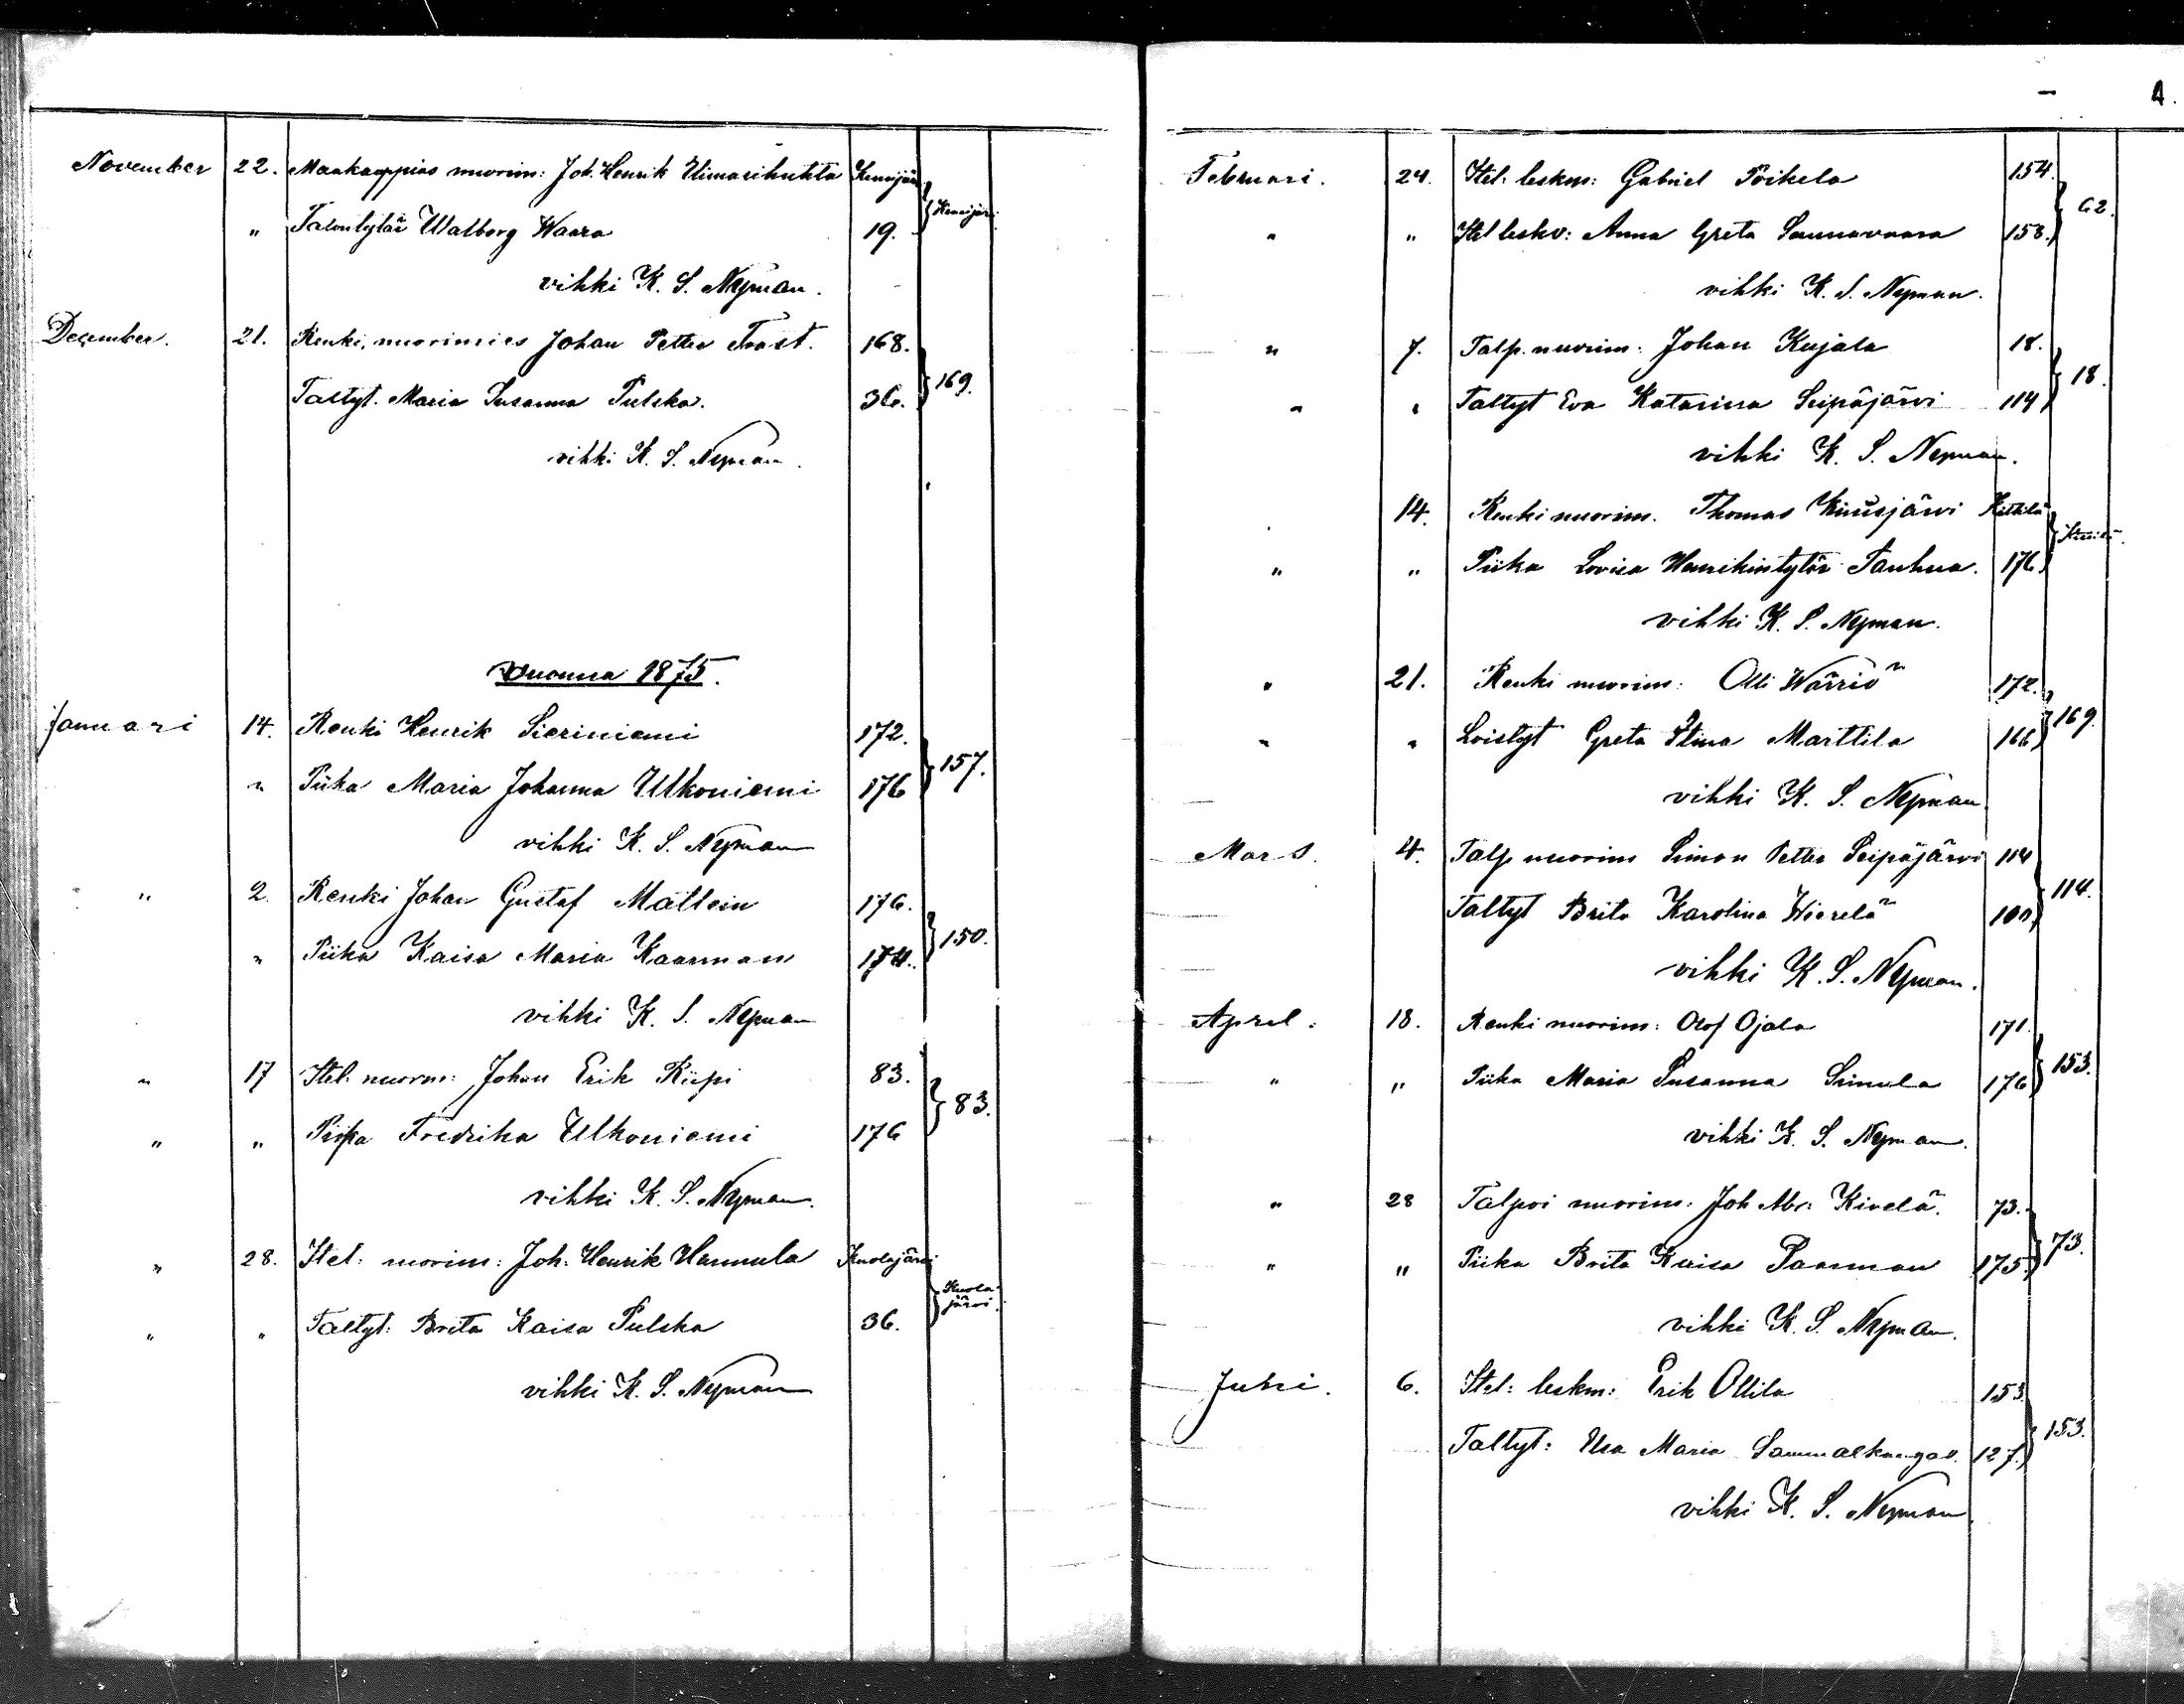 4.
November 22. Maakauppias nuorim: Joh. Henrik Ulimarihuhta Kemijärvi
" Talontytär Walborg Waara 19. Kemijärvi
vihki K. S. Nyman.
December. 21. Renki, nuorimies Johan Petter Frost. 168.
Taltyt. Maria Susanna Pulska. 36. 169.
vihki K. S. Nyman.
Vuonna 1875.
Januari 14. Renki Henrik Sieriniemi 172.
" Piika Maria Johanna Ulkoniemi 176 157.
vihki K. S. Nyman
" 2. Renki Johan Gustaf Mattein 176.
" Piika Kaisa Maria Kaarman 174. 150.
vihki K. S. Nyman
" 17 Itel: nuorm: Johan Erik Kiipi 83.
" " Piika Fredrika Ulkoniemi 176 83.
vihki K. S. Nyman.
" 28. Itel: nuorim: Joh. Henrik Hannula Kuolajärvi
" " Taltyt: Brita Kaisa Pulska 36. Kuolajärvi.
vihki K. S. Nyman
Februari. 24. Itel: leskm: Gabriel Poikela 154.
" " Itel leskv: Anna Greta Saunavaara 158. 62.
vihki K. S. Nyman.
" 7. Talp. nuorim: Johan Kujala 18.
" " Taltyt Eva Katarina Seipäjärvi 114 18.
vihki K. S. Nyman.
" 14. Renki nuorim. Thomas Kiiusjärvi Kittilä
" " Piika Lovisa Henrikintytär Tanhua. 176. Kittilä.
vihki K. S. Nyman.
" 21. Renki nuorim: Olli Wärriö 172.
" " Loistyt Greta Stina Marttila 166 169.
vihki K. S. Nyman.
Mars. 4. Talp nuorim Simon Petter Seipäjärvi 114
Taltyt Brita Karolina Hierelä 100 114.
vihki K. S. Nyman.
April: 18. Renki nuorim: Olof Ojala 171.
" " Piika Maria Susanna Simula 176 153.
vihki K. S. Nyman.
" 28 Talpoi nuorim: Joh Abr: Kivelä. 73.
" " Piika Brita Kaisa Paarman 175. 73.
vihki K. S. Nyman.
Juni. 6. Itel: leskm: Erik Ollila 153.
Taltyt: Elsa Maria Sammalkangas. 127. 153.
vihki K. S. Nyman